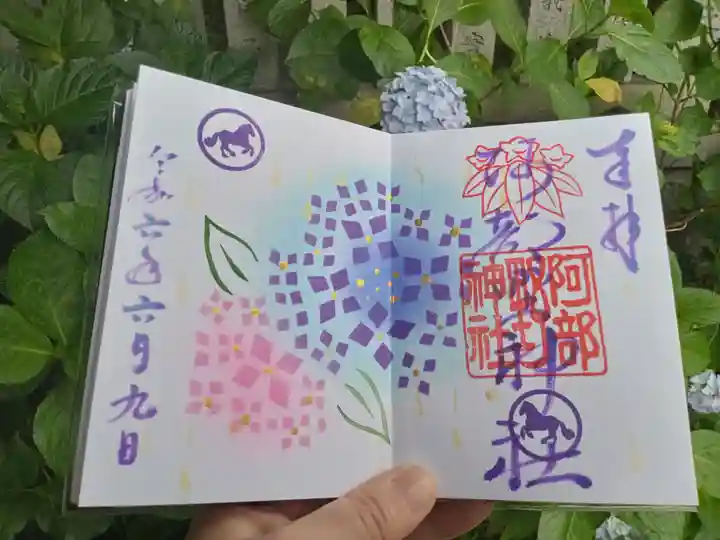 奉拝
阿部野神社
阿部
野
神社
令和六年六月九日